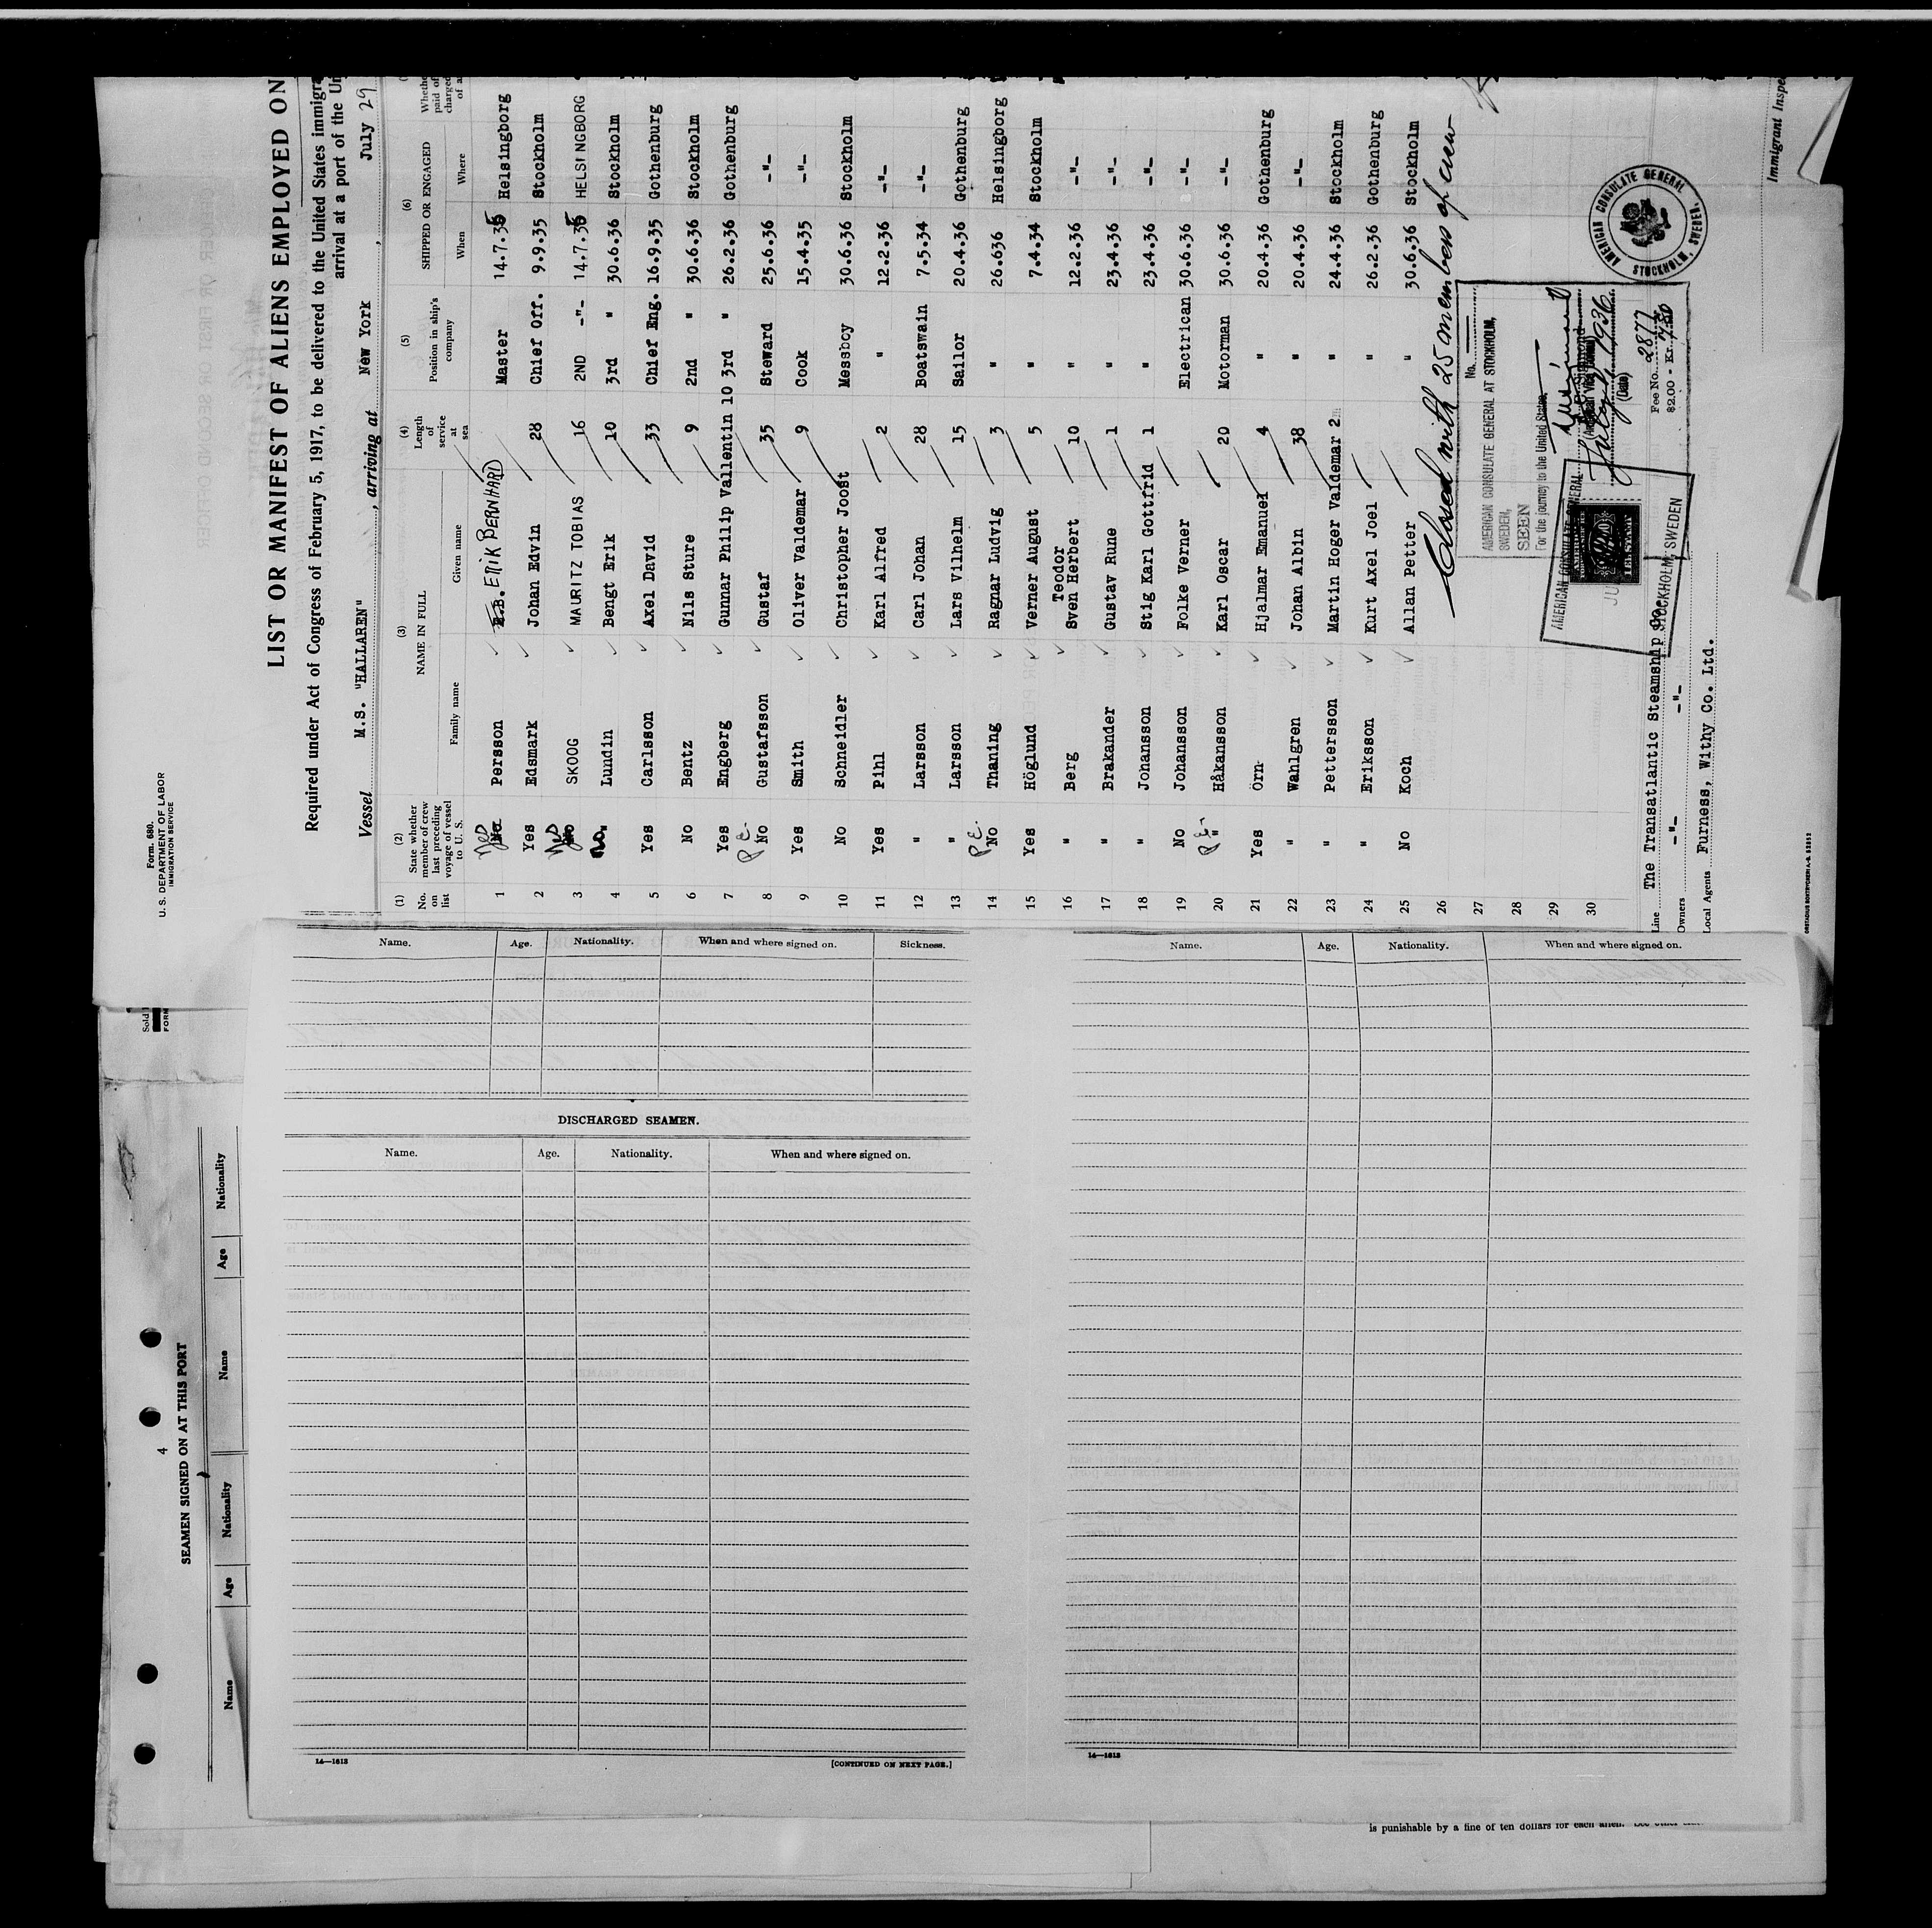 Form. 680.
U. S. DEPARTMENT OF LABOR
IMMIGRATION SERVICE
LIST OR MANIFEST OF ALIENS EMPLOYED ON
Required under Act of Congress of February 5, 1917, to be delivered to the United States immigra
arrival at a port of the Un
Vessel M.S. "HALLAREN" , arriving at New York , July 29
(1) (2) (3) (4) (5) (6)
No. on list State whether member of crew last preceding voyage of vessel to U. S. NAME IN FULL Length of service at sea Position in ship's company SHIPPED OR ENGAGED Wheth paid of charged of a
Family name Given name When Where
1 Yes No Persson E.B. ERIK BERNHARD Master 14.7.35 Helsingborg
2 Yes Edsmark Johan Edvin 28 Chief Off. 9.9.35 Stockholm
3 Yes No SKOOG MAURITZ TOBIAS 16 2ND -"- 14.7.35 HELSINGBORG
4 no " Lundin Bengt Erik 10 3rd " 30.6.36 Stockholm
5 Yes Carlsson Axel David 33 Chief Eng. 16.9.35 Gothenburg
6 No Bentz Nils Sture 9 2nd " 30.6.36 Stockholm
7 Yes Engberg Gunnar Philip Vallentin 10 3rd " 26.2.36 Gothenburg
8 P.E. No Gustafsson Gustaf 35 Steward 25.6.36 -"-
9 Yes Smith Oliver Valdemar 9 Cook 15.4.35 -"-
10 No Schneidler Christopher Joost Messboy 30.6.36 Stockholm
11 Yes Pihl Karl Alfred 2 " 12.2.36 -"-
12 " Larsson Carl Johan 28 Boatswain 7.5.34 -"-
13 " Larsson Lars Vilhelm 15 Sailor 20.4.36 Gothenburg
14 P.E. No Thaning Ragnar Ludvig 3 " 26.636 Helsingborg
15 Yes Höglund Verner August 5 " 7.4.34 Stockholm
16 " Berg Teodor Sven Herbert 10 " 12.2.36 -"-
17 " Brakander Gustav Rune 1 " 23.4.36 -"-
18 " Johansson Stig Karl Gottfrid 1 " 23.4.36 -"-
19 No Johansson Folke Verner Electrican 30.6.36 -"-
20 P.E. " Håkansson Karl Oscar 20 Motorman 30.6.36 -"-
21 Yes Örn Hjalmar Emanuel 4 " 20.4.36 Gothenburg
22 " Wahlgren Johan Albin 38 " 20.4.36 -"-
23 " Pettersson Martin Hoger Valdemar 2 m " 24.4.36 Stockholm
24 " Eriksson Kurt Axel Joel " 26.2.36 Gothenburg
25 No Koch Allan Petter " 30.6.36 Stockholm
26
27
28
29
30
Closed with 25 members of crew
No.
AMERICAN CONSULATE GENERAL AT STOCKHOLM,
SWEDEN,
SEEN
For the journey to the United States,
(American Vice Consul)
July 9/1936
(Date)
Fee No. 2877
$2.00 - Kr. 7.80
AMERICAN CONSULATE GENERAL
STOCKHOLM, SWEDEN
AMERICAN CONSULATE GENERAL
STOCKHOLM, SWEDEN.
Line The Transatlantic Steamship Co.
Owners -"- -"-
Local Agents Furness, Withy Co. Ltd.
Immigrant Inspe
Sold
FORM
4
SEAMEN SIGNED ON AT THIS PORT
Name Age Nationality Name Age Nationality
Name. Age. Nationality. When and where signed on. Sickness.
DISCHARGED SEAMEN.
Name. Age. Nationality. When and where signed on.
14—1613
[CONTINUED ON NEXT PAGE.]
Name. Age. Nationality. When and where signed on.
14—1613
is punishable by a fine of ten dollars for each alien.